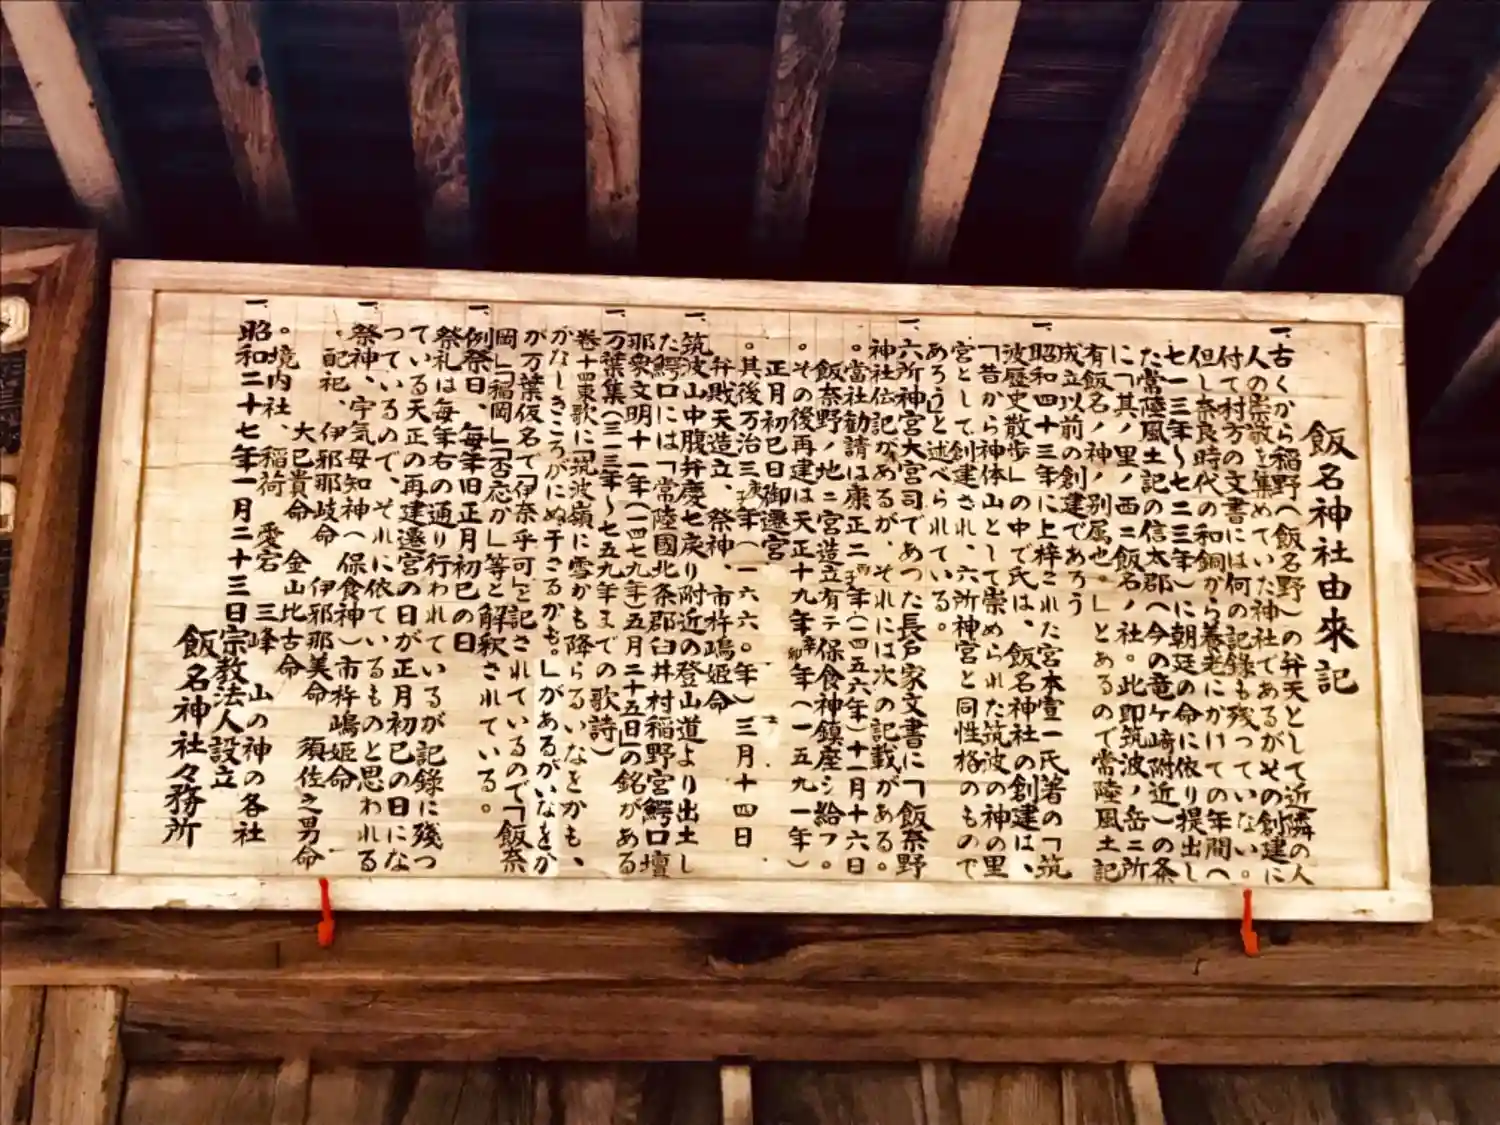 飯名神社由来記
一、古くから稲野へ(飯名野)の弁天として近隣の人
人の崇敬を集めていた神社であるがその創建に
付て村方の文書には何の記録も残っていない。
但し奈良時代の和銅から養老にかけての年間へ
七一三年〜七二三年)に朝廷の命に依り提出し
た常陸風土記の信太郡へ今の竜ヶ崎附近)の条
に「其ノ里ノ西ニ飯名ノ社。此即筑波ノ岳ニ所
有飯名ノ神ノ別属也。」とあるので常陸風土記
成立以前の創建であろう
一、昭和四十三年に上梓された宮本宣一氏著の「筑
波歴史散歩」の中で氏は、飯名神社の創建は、
「昔から神体山として崇められた筑波の神の里
宮として創建され、六所神宮と同性格のもので
あろう」と述べられている。
一、六所神宮大宮司であった長戸家文書に「飯奈野
神社伝記があるが、それには次の記載がある。
。當社勧請は康正二丙子年(一四五六年)十一月十六日
飯奈野ノ地ニ宮造立有テ保食神鎮座シ給フ。
。その後再建は天正十九年辛卯年(一五九一年)
正月初巳日御遷宮
。其後万治三庚子年(一六六〇年)三月十四日
弁財天造立、祭神、市杵嶋姫命
一、筑波山中腹弁慶七戻り附近の登山道より出土し
た鰐口には「常陸國北条郡臼井村稲野宮鰐口壇
那衆文明十一年(一四七九年)五月二十五日」の銘がある
一、万葉集(三一三年〜七五九年までの歌詩)
巻十四東歌に「筑波嶺に雪かも降らるいなをかも、
かなしきころがにぬ干さるかも。」があるがいなをか
が万葉仮名で「伊奈乎可」と記されているので「飯奈
岡」「稲岡」「否応か」等と解釈されている。
一、例祭日、毎年旧正月初巳の日
祭礼は毎年右の通り行われているが記録に残っ
ている天正の再建遷宮の日が正月初巳の日にな
っているので、それに依ているものと思われる
一、祭神、宇気母知神(保食神)市杵嶋姫命
。配祀、伊邪那岐命 伊邪那美命 須佐之男命
大己貴命 金山比古命
。境内社、稲荷 愛宕 三峰 山の神の各社
一、昭和二十七年一月二十三日宗教法人設立
飯名神社々務所